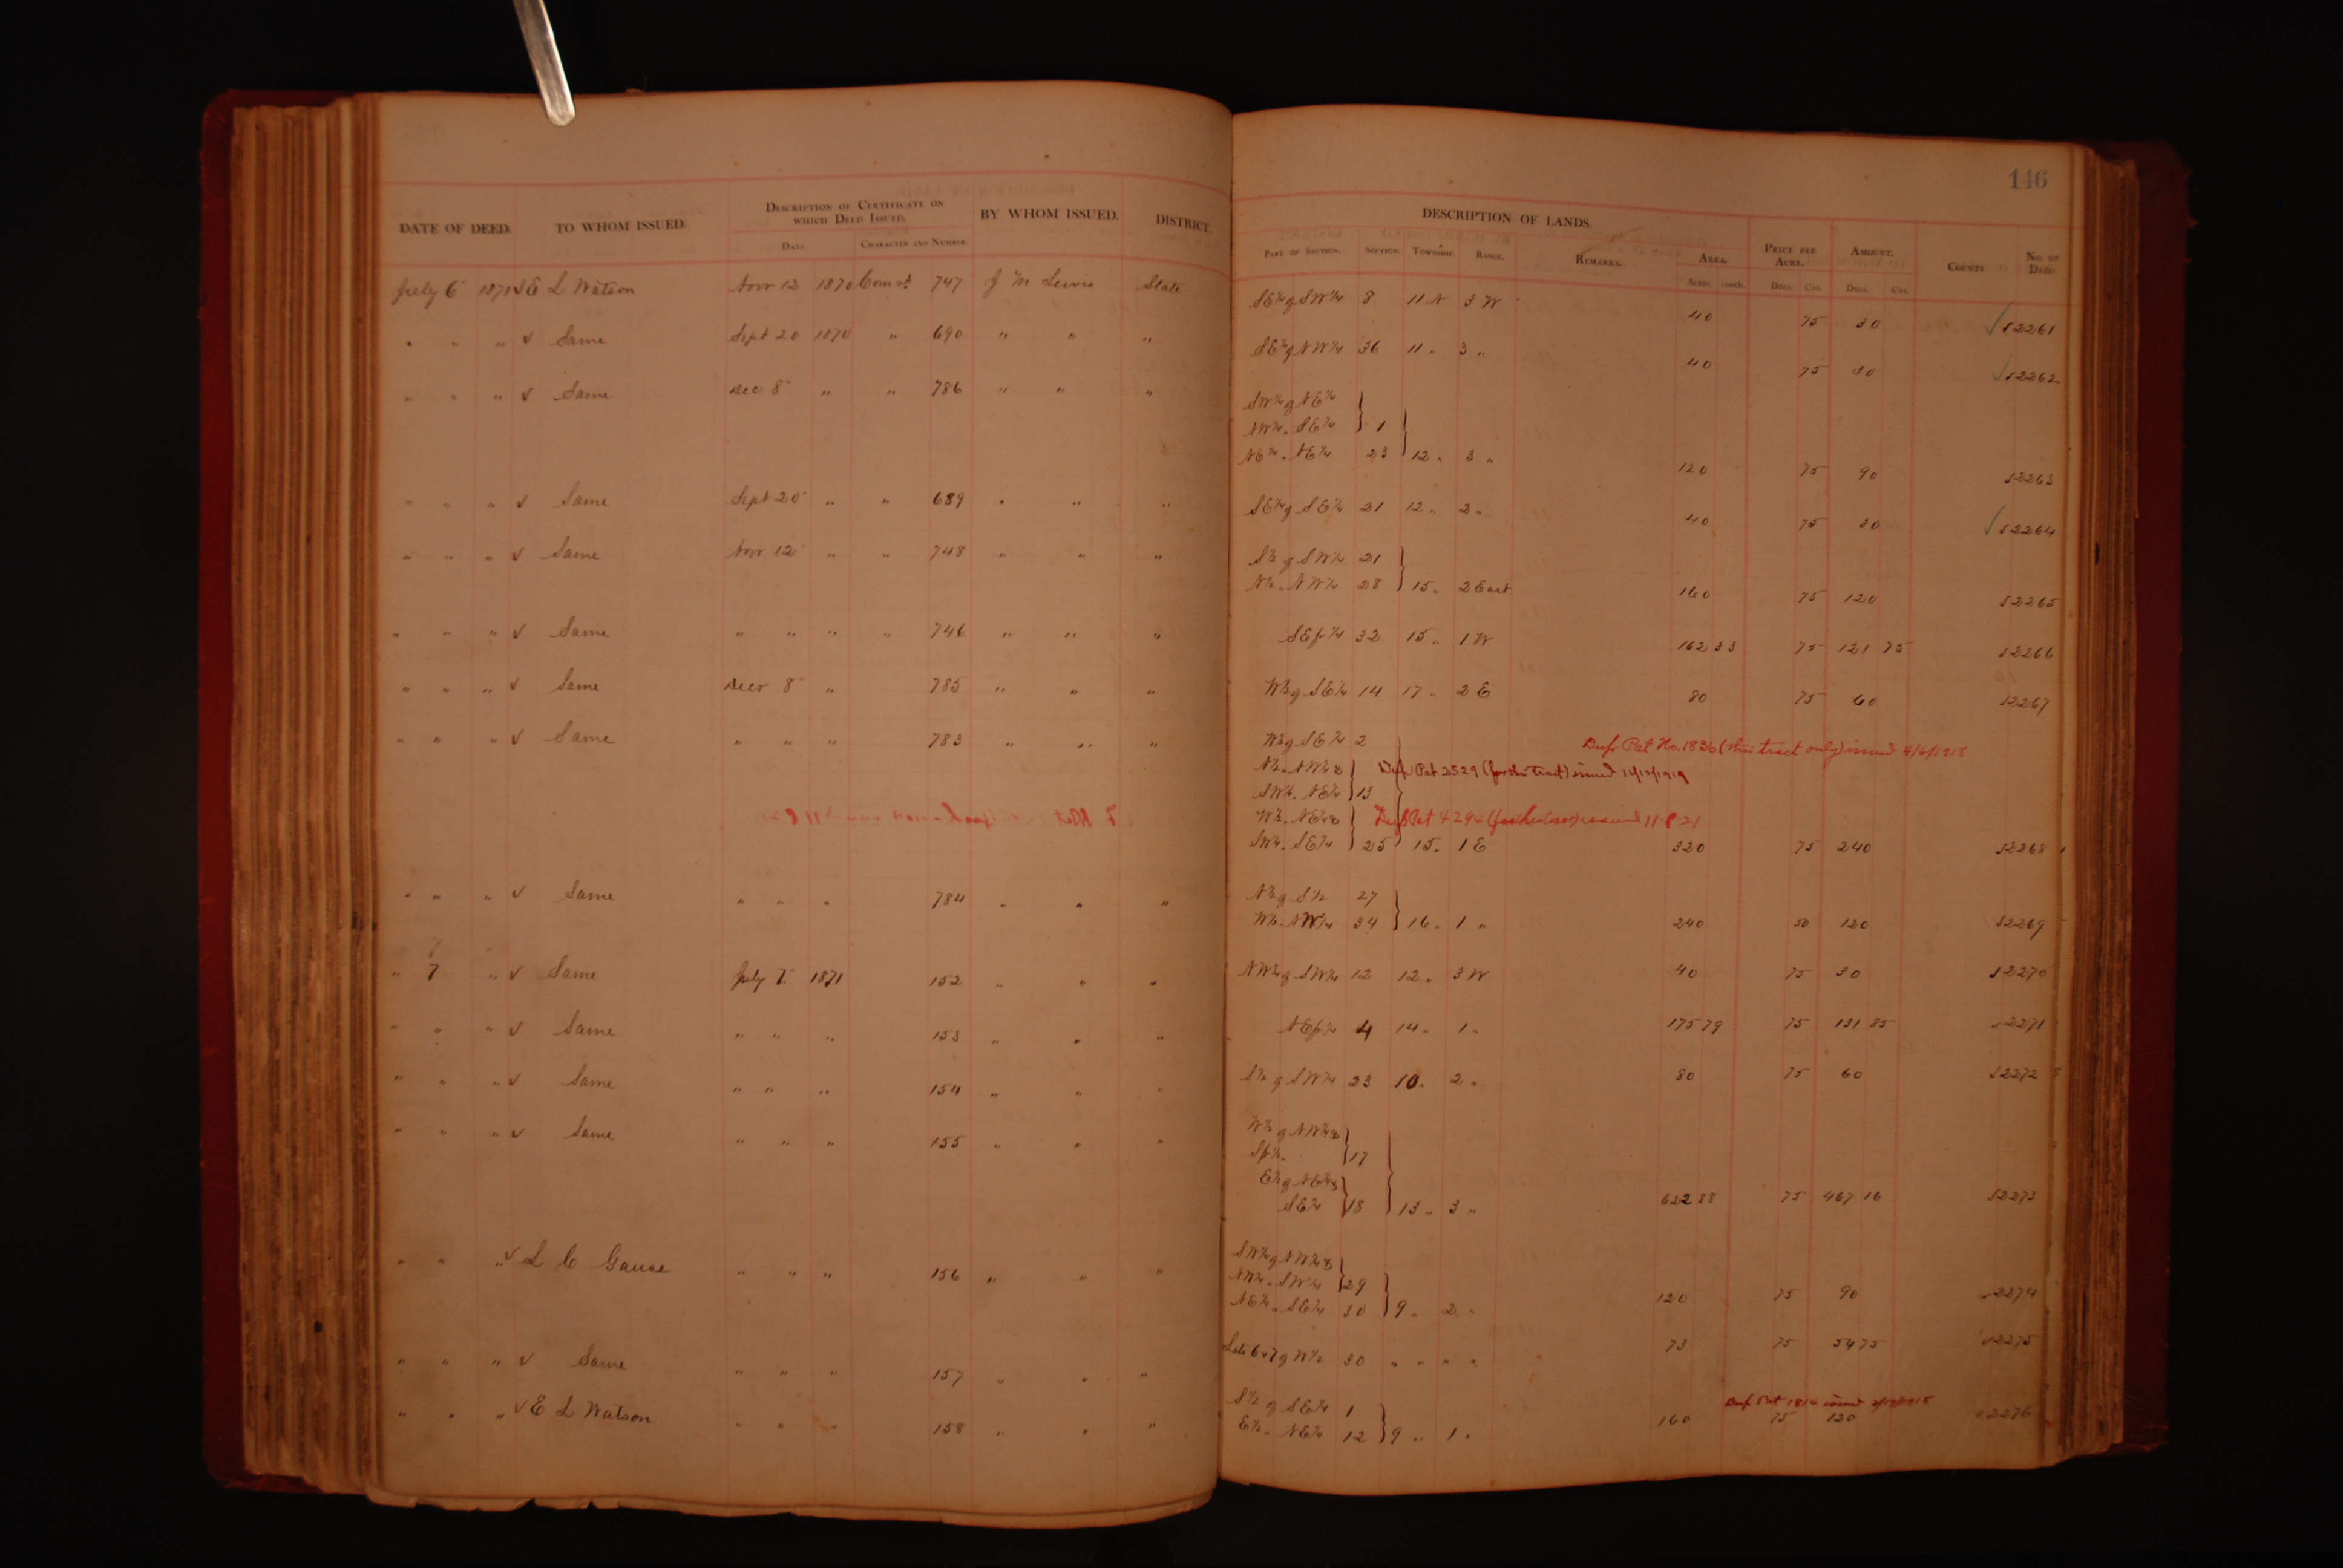 146
DESCRIPTION OF LANDS.
DATE OF DEED. TO WHOM ISSUED. DESCRIPTION OF CERTIFICATE ON WHICH DEED ISSUED. BY WHOM ISSUED. DISTRICT. PART OF SECTION. SECTION. TOWNSHIP. RANGE. REMARKS. AREA. PRICE PER ACRE. AMOUNT. COUNTY NO. OF DEED.
DATE. CHARACTER AND NUMBER. ACRES. 100ths. DOLS. CTS. DOLS. CTS.
July 6 1871 √ E L Watson Novr 12 1870 747 J M Lewis State SE¼ of SW¼ 8 11 N 3 W 40 75 30 √ 2261
" " " √ Same Sept 20 1870 " 690 " " " SE¼ of NW¼ 36 11 " 3 " 40 75 30 √ 2262
" " " √ Same Dec 8 " " 786 " " " SW¼ of NE¼
NW¼ " SE¼ } 1
NE¼ " NE¼ 23 } 12 " 3 " 120 75 90 2263
" " " √ Same Sept 20 " " 689 " " " SE¼ of SE¼ 21 12 " 2 " 40 75 30 √ 2264
" " " √ Same Novr 12 " " 748 " " " S½ of SW¼ 21
N½ " NW¼ 28 } 15 " 2 East 160 75 120 2265
" " " √ Same " " " " 746 " " " SE fr ¼ 32 15 " 1 W 162 33 75 121 75 2266
" " " √ Same Decr 8 " 785 " " " W½ of SE¼ 14 17 " 2 E 80 75 60 2267
" " " √ Same " " " 783 " " " W½ of SE¼ 2 Dup Pat No. 1836 (this tract only) issued 4/6/1918
N½ " NW¼ & Dup Pat 2529 (for this tract) issued 11/12/1919
SW¼ " NE¼ } 13
W½ " NE¼ & Dup Pat 4294 issued 11-8-21
SW¼ " SE¼ } 25 } 15 " 1 E 320 75 240 2268
" " " √ Same " " " 784 " " " N½ of S½ 27
W½ " NW¼ 34 } 16 " 1 " 240 50 120 2269
" 7 " √ Same July 7 1871 152 " " " NW¼ of SW¼ 12 12 " 3 W 40 75 30 2270
" " " √ Same " " " 153 " " " NE fr ¼ 4 14 " 1 " 175 79 75 131 85 2271
" " " √ Same " " " 154 " " " S½ of SW¼ 23 10 " 2 " 80 75 60 2272
" " " √ Same " " " 155 " " " W½ of NW¼ &
S fr ½ " } 17
E½ of NE¼ &
SE¼ } 18 } 13 " 3 " 622 88 75 467 16 2273
" " " √ L C Gause " " " 156 " " " SW¼ of NW¼ &
NW¼ " SW¼ } 29
NE¼ " SE¼ 30 } 9 " 2 " 120 75 90 2274
" " " √ Same " " " 157 " " " Lots 6 & 7 of W½ 30 " " " " 73 75 54 75 2275
" " " √ E L Watson " " " 158 " " " S½ of SE¼ 1 Dup Pat 1814 issued
E½ " NE¼ 12 } 9 " 1 " 160 75 120 2276